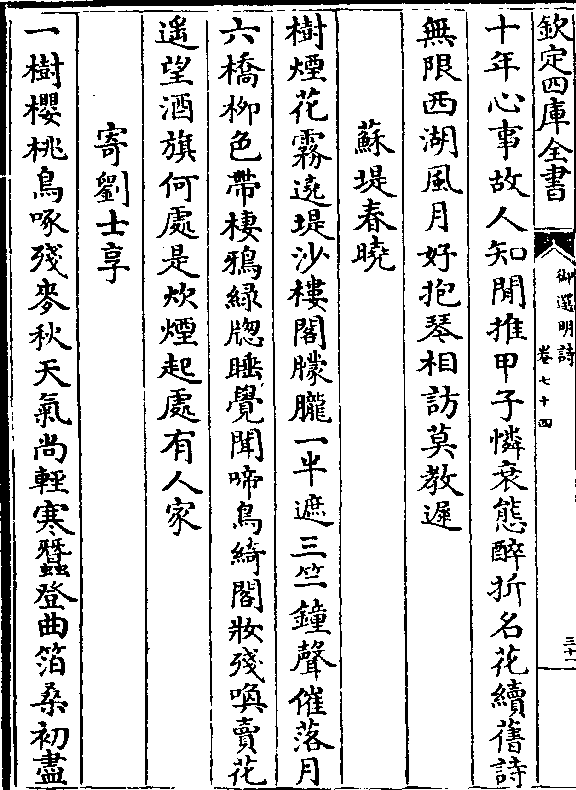 欽定四庫全書
御選明詩
卷七十四
三十一
十年心事故人知閒推甲子憐衰態醉折名花續舊詩
無限西湖風月好抱琴相訪莫教遲
蘇堤春曉
樹煙花霧遶堤沙樓閣朦朧一半遮三竺鐘聲催落月
六橋柳色帶棲鴉綠牕睡覺聞啼鳥綺閣妝殘喚賣花
遥望酒旗何處是炊煙起處有人家
寄劉士享
一樹櫻桃鳥啄殘麥秋天氣尚輕寒蠶登曲箔桑初盡